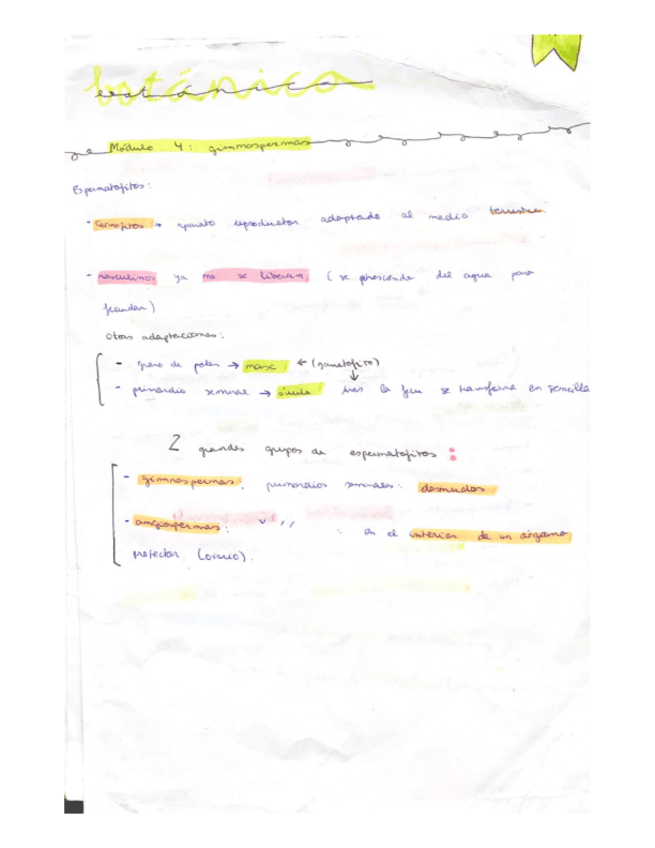 botánica
Módulo 4: gimnospermas
Espermatofitos:
- Cormofitos → aparato reproductor adaptado al medio terrestre
- masculinos ya no se liberan (se prescinde del agua para
fecundar)
Otras adaptaciones:
- grano de polen → masc ← (gametofito)
- primordio seminal → óvulo tras la fecu se transforma en semilla
2 grandes grupos de espermatofitos:
- gimnospermas: primordios seminales: desnudos
- angiospermas: " : en el interior de un órgano
protector (ovario).